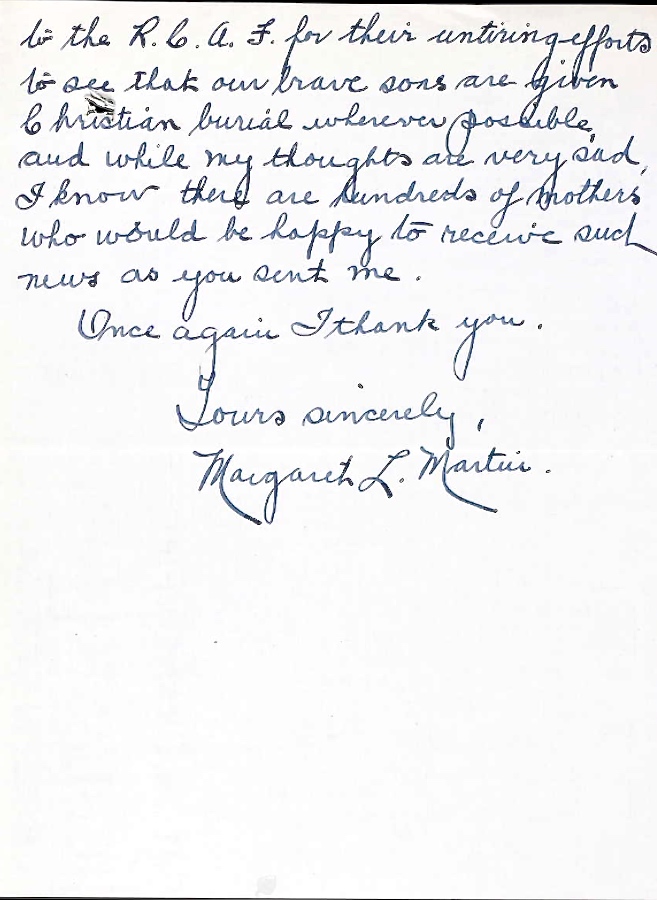 to the R.C.A.F. for their untiring efforts
to see that our brave sons are given
Christian burial wherever possible,
and while my thoughts are very sad,
I know there are hundreds of mothers
who would be happy to receive such
news as you sent me.
Once again I thank you.
Yours sincerely,
Margaret L. Martin.